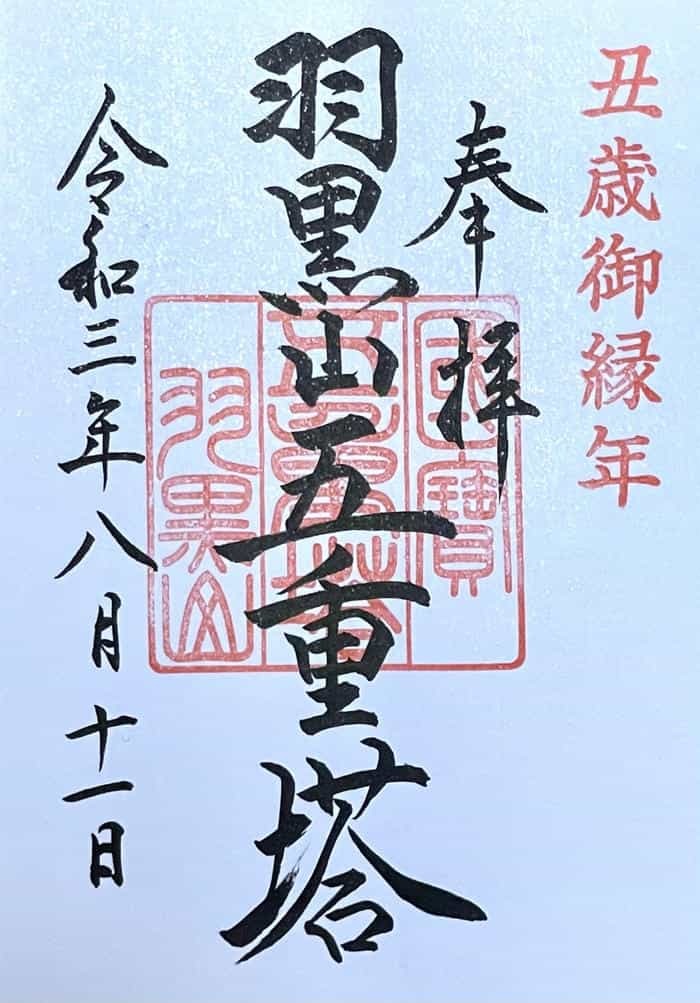 丑歳御縁年
奉拝
羽黒山五重塔
令和三年八月十一日
國寶
五重塔
羽黒山